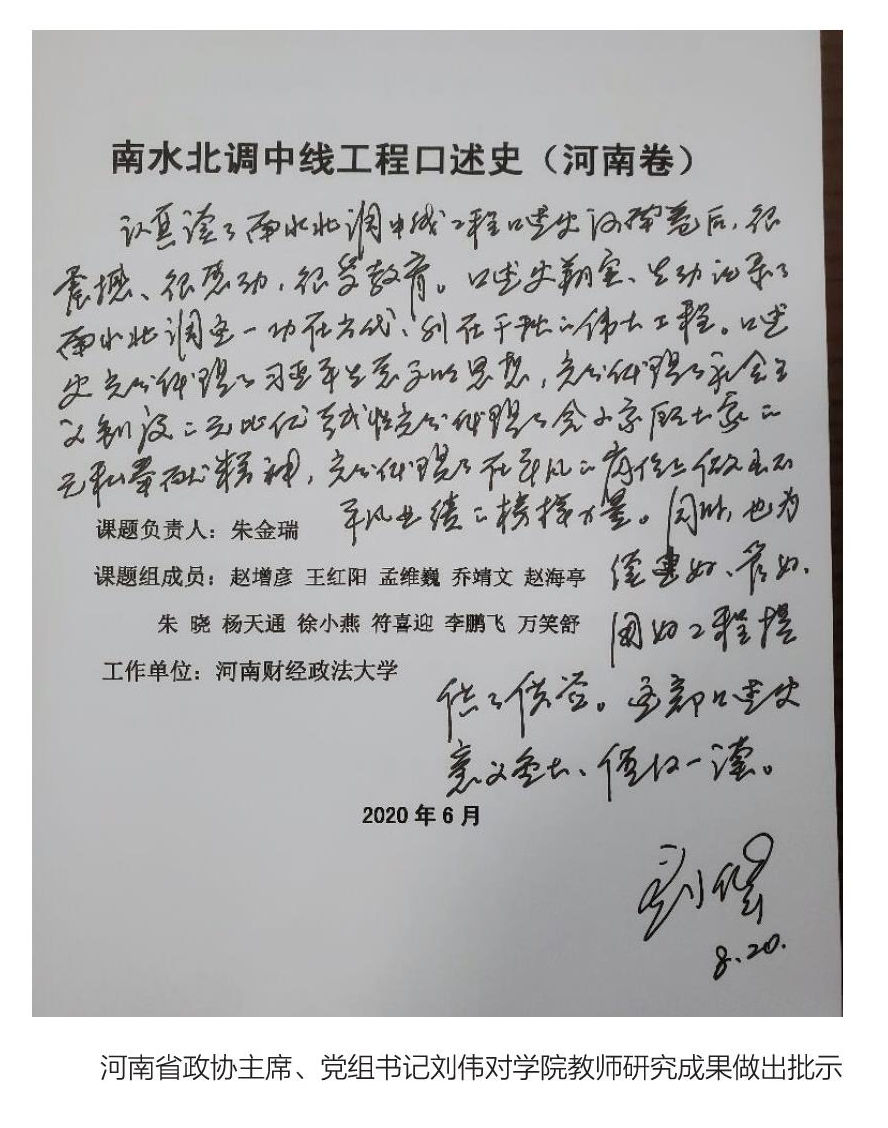 南水北调中线工程口述史（河南卷）
认真读了南水北调中线工程口述史河南卷后，很
震撼、很感动，很受教育。口述史翔实、生动记录了
南水北调这一功在当代、利在千秋的伟大工程。口述
史充分体现了习近平生态文明思想，充分体现了社会主
义制度的无比优越性充分体现了舍小家顾大家的
无私奉献精神，充分体现了在平凡的岗位上做出不
平凡业绩的榜样力量。同时，也为
课题负责人：朱金瑞
课题组成员：赵增彦 王红阳 孟维巍 乔靖文 赵海亭
建好、管好、
朱 晓 杨天通 徐小燕 符喜迎 李鹏飞 万笑舒
用好工程提
工作单位：河南财经政法大学
供了借鉴。这部口述史
意义重大、值得一读。
2020 年 6 月
刘伟
8.20.
河南省政协主席、党组书记刘伟对学院教师研究成果做出批示